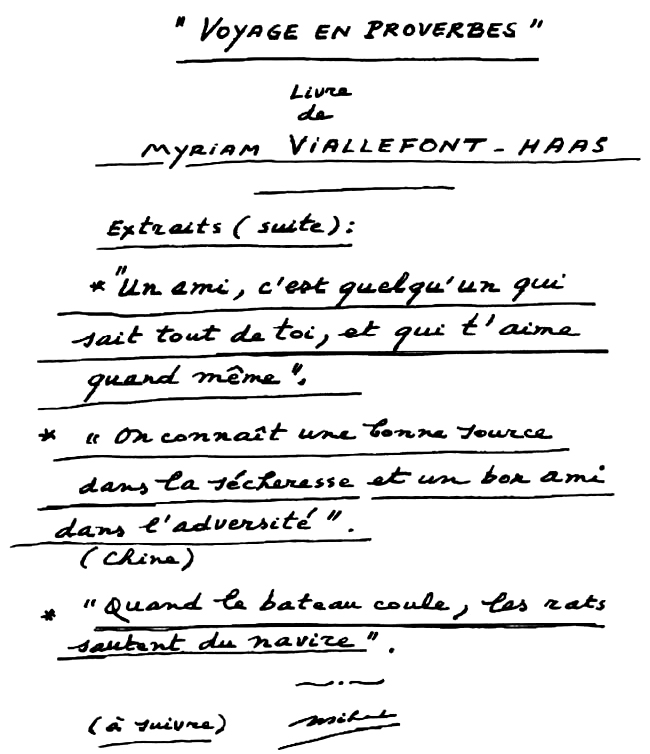 " VOYAGE EN PROVERBES "
Livre
de
MYRIAM VIALLEFONT - HAAS
Extraits ( suite ) :
* "Un ami, c'est quelqu'un qui
sait tout de toi, et qui t'aime
quand même ".
* " On connaît une bonne source
dans la sécheresse et un bon ami
dans l'adversité ".
( Chine )
* " Quand le bateau coule, les rats
sautent du navire ".
( à suivre )